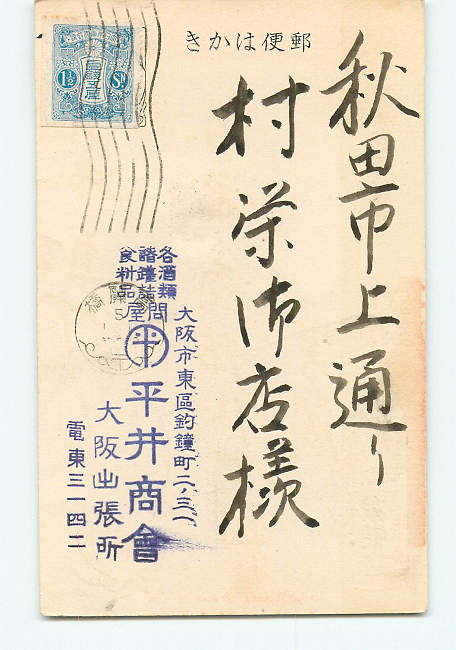 郵便はかき
秋田市上通り
村栄御店様
大阪市東區釣鐘町二ノ三一
各酒類
諸鑵詰問屋
食料品
平井商會
大阪出張所
電東三一四二
1½ Sn